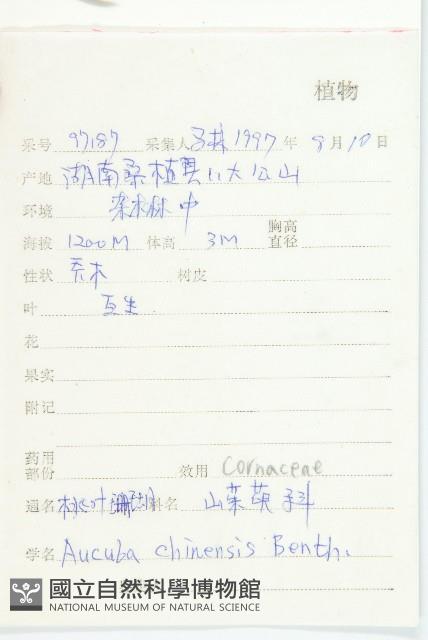 植物
采号 97187 采集人 1997年8月10日
产地 湖南桑植县八大公山
环境 杂木林中
海拔 1200M 体高 3M 胸高直径
性状 乔木 树皮
叶 互生
花
果实
附记
药用部份 效用 Cornaceae
通名 桃叶珊瑚 科名 山茱萸科
学名 Aucuba chinensis Benth.
國立自然科學博物館
NATIONAL MUSEUM OF NATURAL SCIENCE